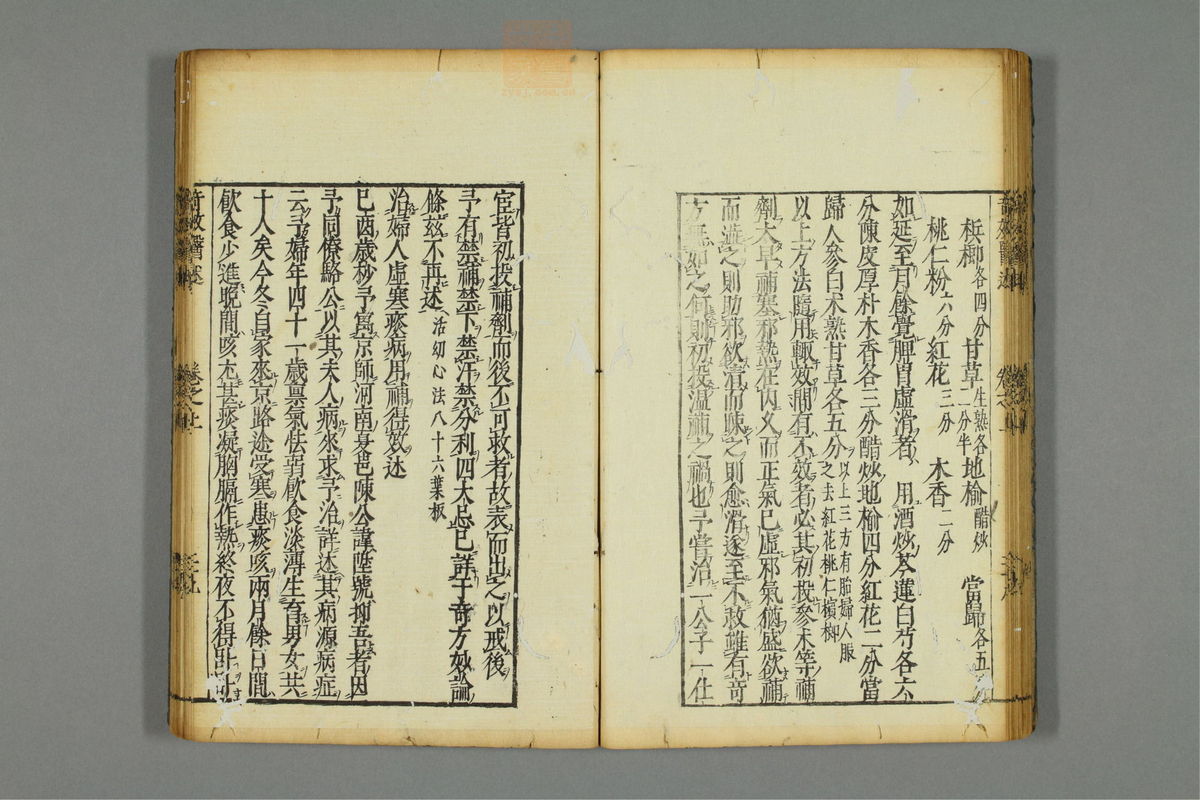 梹榔各四分甘草生熟各二分半地榆醋炒 當歸各五分
桃仁粉六分紅花三分 木香二分
如延至月餘覺脾胃虛滑者 用酒炒芩蓮白芍各六
分陳皮厚朴木香各三分醋炒地榆四分紅花二分當
歸人參白朮熟甘草各五分以上三方有胎婦人服之去紅花桃仁檳榔
以上方法隨用輒效間有不效者必其初投參朮等補
劑太早補塞邪熱在內久而正氣已虛邪氣猶盛欲補
而澁之則助邪欲清而踈之則愈滑遂至不救雖有奇
方無如之何則初投溫補之禍也予嘗治一公子一仕
宦皆初投補劑而後不可救者故表而出之以戒後
予有禁補禁下禁汗禁分利四大忌已詳于奇方妙論
條茲不再述活幼心法八十六葉板
治婦人虛寒痰病用補得效述
巳酉歲秒予寓京師河南夏邑陳公諱陞號抑吾者因
予同僚駱公以其夫人病來求予治詳述其病源病症
云予婦年四十一歲禀氣怯弱飲食淡薄生育男女共
十人矣今冬自家來京路途受寒患痰咳兩月餘日間
飲食少進晚間咳尤甚痰凝胸膈作熱終夜不得卧
奇效醫述 卷之上